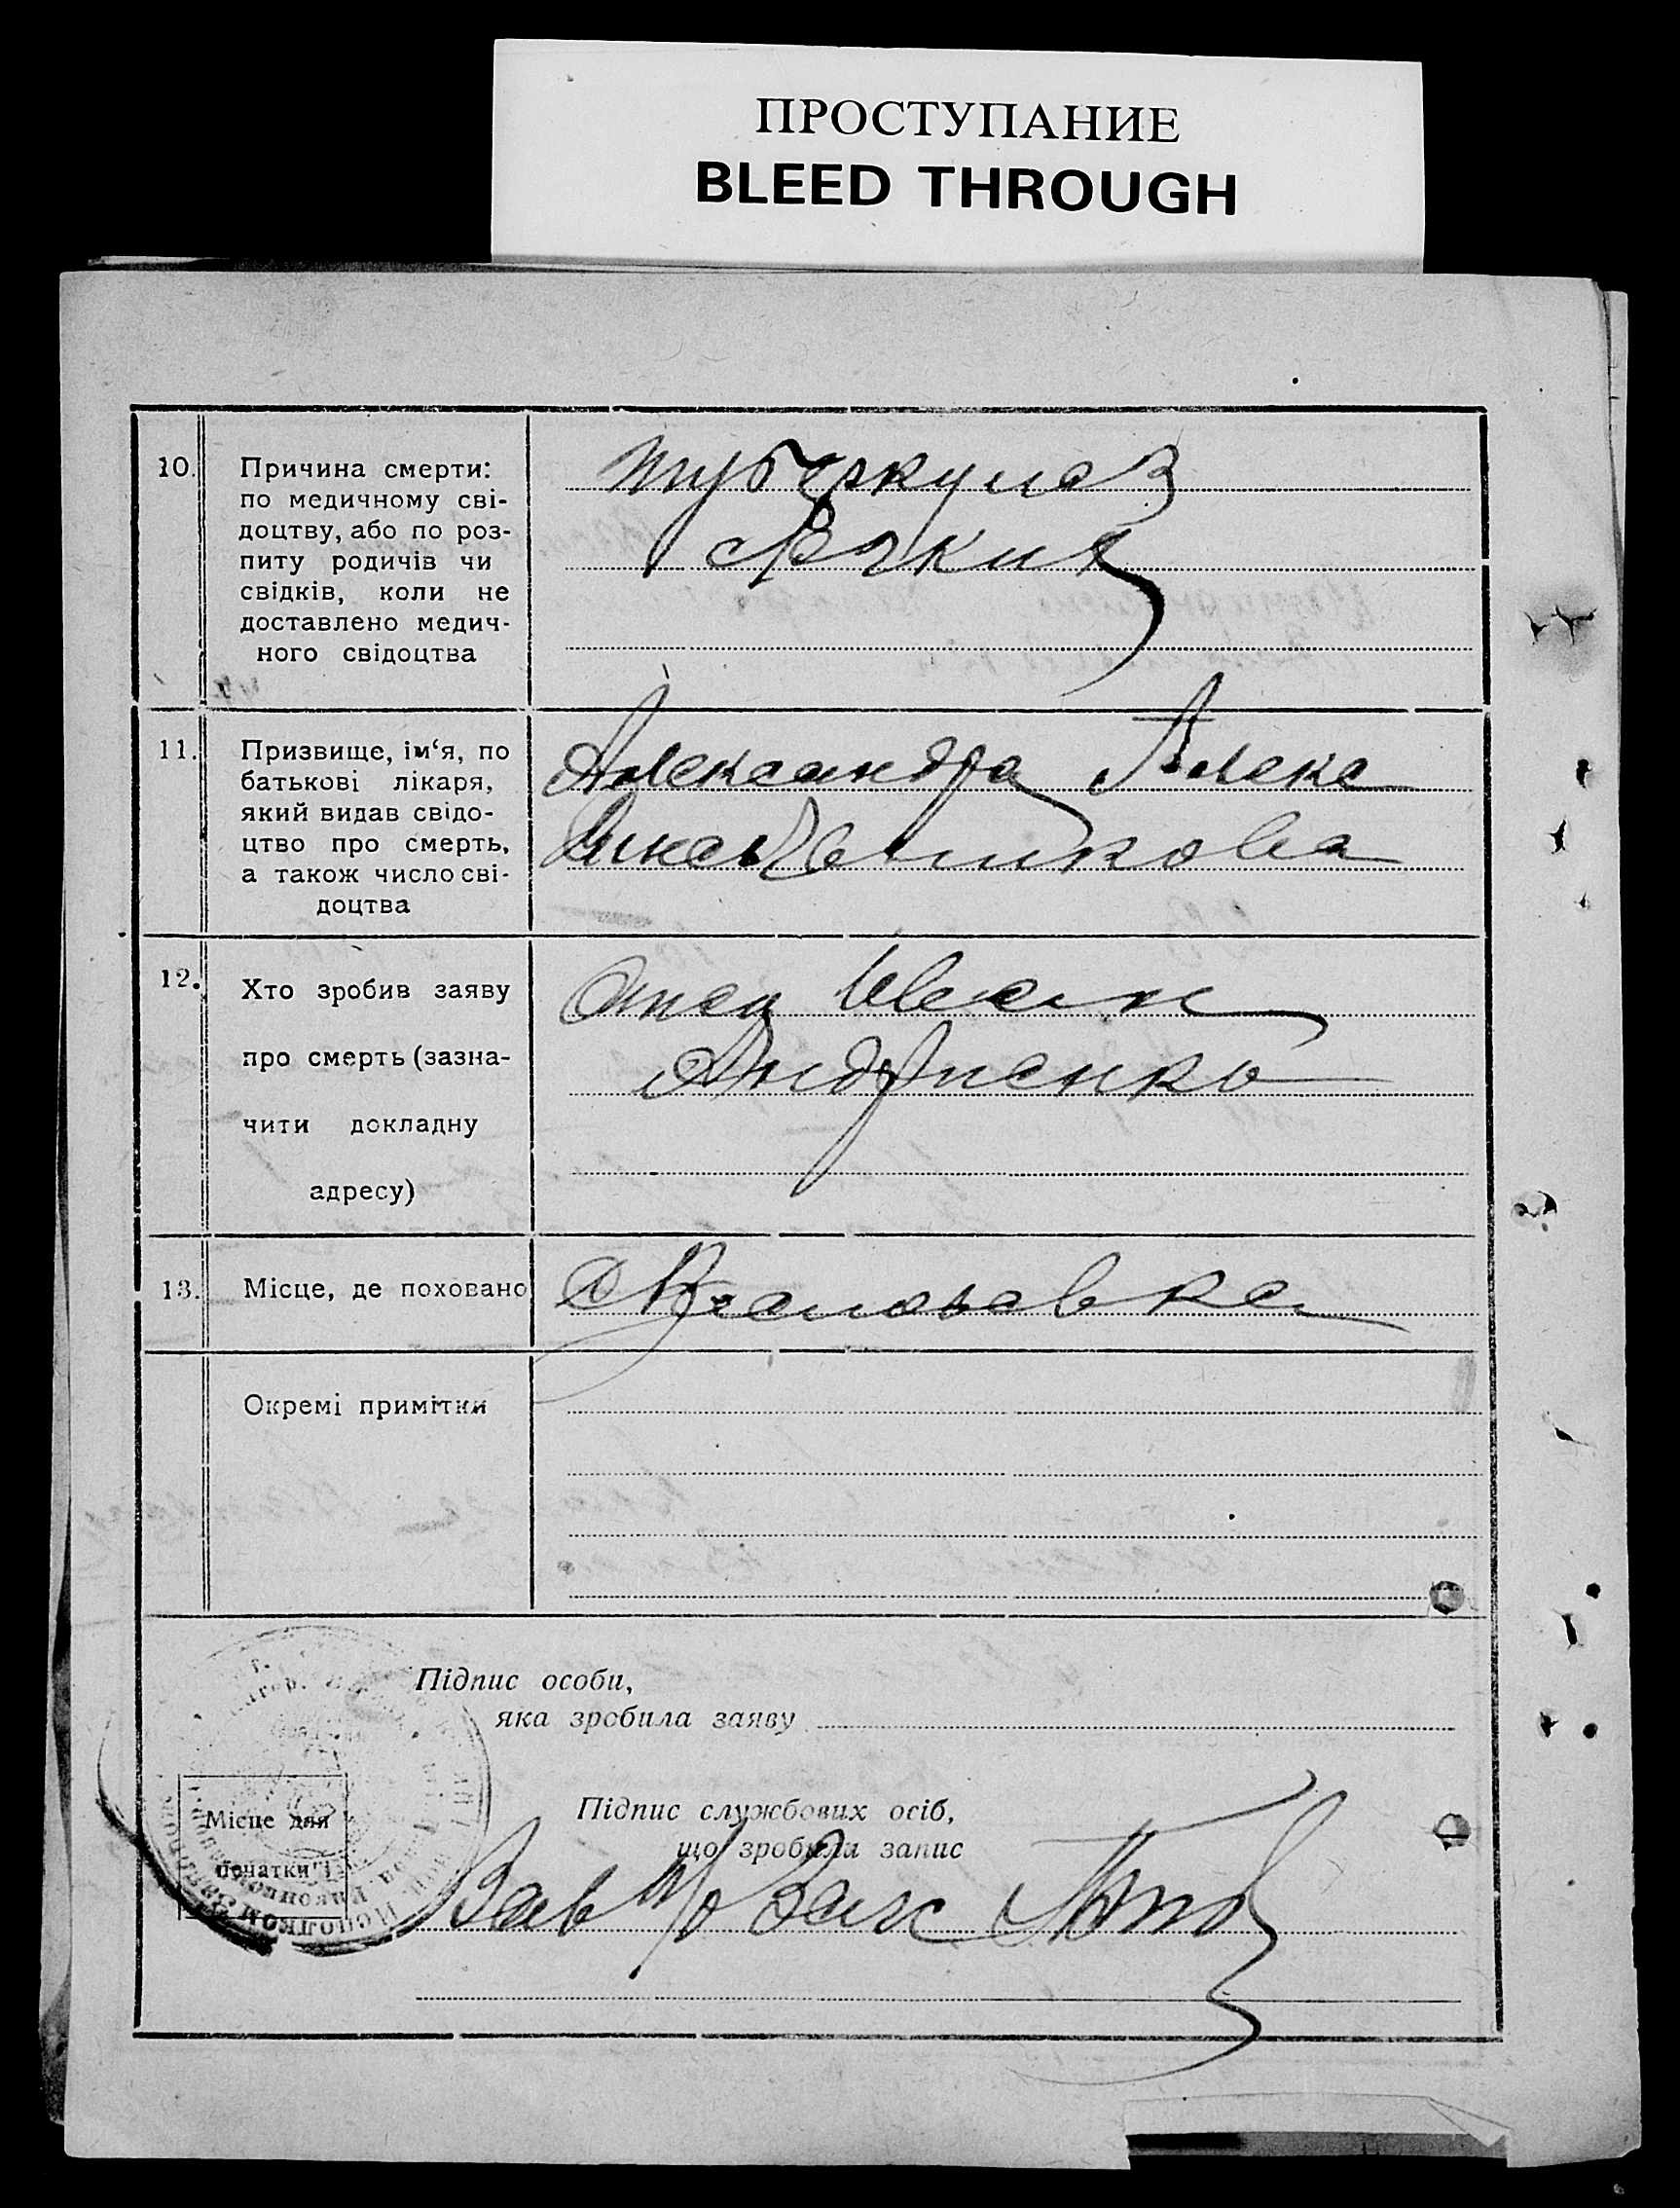 ПРОСТУПАНИЕ
BLEED THROUGH
10.
Причина смерти:
по медичному сві-
доцтву, або по роз-
питу родичів чи
свідків, коли не
доставлено медич-
ного свідоцтва
туберкулоз
11.
Призвище, ім‘я, по
батькові лікаря,
який видав свідо-
цтво про смерть,
а також число сві-
доцтва
Александра Алекс
12.
Хто зробив заяву
про смерть (зазна-
чити докладну
адресу)
Отец Иван
Андриенко
13.
Місце, де поховано
Окремі примітки
Підпис особи,
яка зробила заяву
Місце для
печатки
Підпис службових осіб,
що зробили запис
Зав